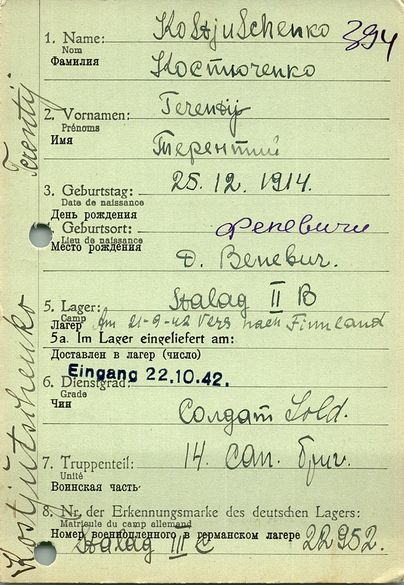 Kostjuschenko 394
1. Name:
Nom
Фамилия
Костюченко
2. Vornamen: Terentij
Prénoms
Имя
Терентий
Terentij
3. Geburtstag: 25. 12. 1914.
Date de naissance
День рождения
4. Geburtsort:
Lieu de naissance
Место рождения
Феневичи
Д. Веневич.
5. Lager: Stalag II B
Camp
Лагер Am 21-9-42 Vers nach Finnland
5a. Im Lager eingeliefert am:
Доставлен в лагер (число)
Eingang 22.10.42.
6. Dienstgrad:
Grade
Чин
Солдат Sold.
7. Truppenteil: 14. Сап. бриг.
Unité
Воинская часть
8. Nr. der Erkennungsmarke des deutschen Lagers:
Matricule du camp allemand
Номер военнопленного в германском лагере 22952.
Stalag III C
Kostjutschenko